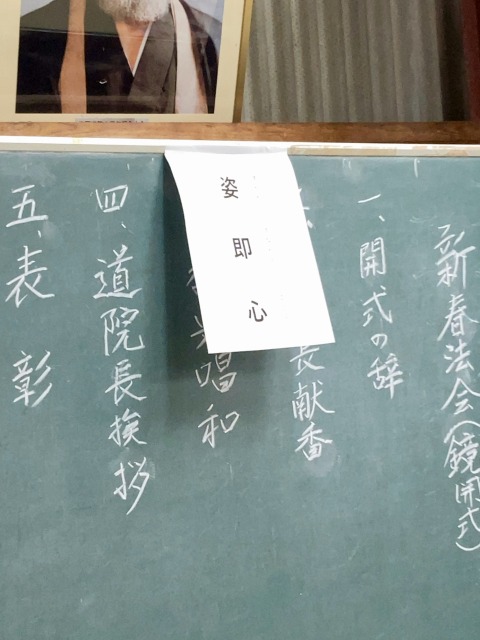 新春法会(鏡開式)
一、開式の辞
長献香
唱和
四、道院長挨拶
五、表彰
姿即心